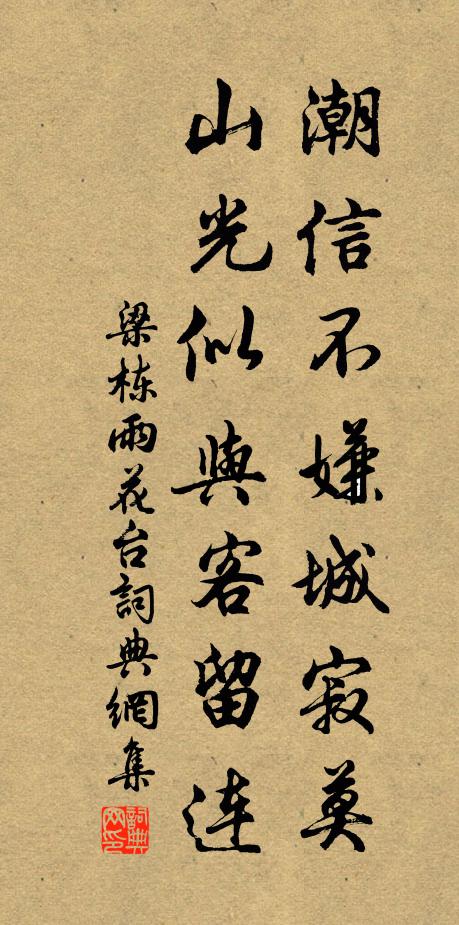 潮信不嫌城寂莫
山光似與客留連
梁栋雨花台詞典網集
詞典网印